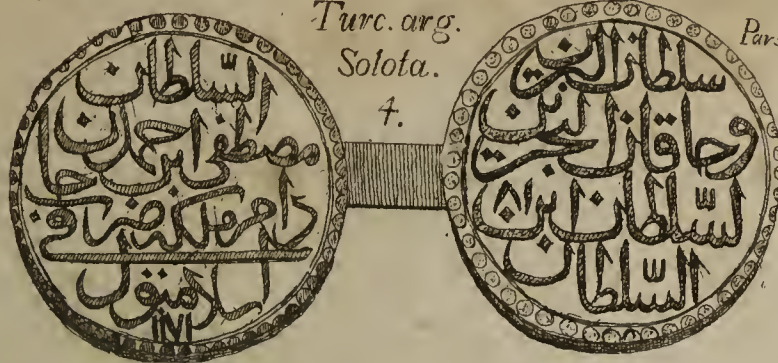 Turc. arg.
Solota.
4.
Par.
السّلطان
مصطفى ابن احمد خان
دام ملكه ضرب في
اسلامبول
١١٧١
سلطان البرين
وخاقان البحرين
السّلطان ابن ٨١
السّلطان